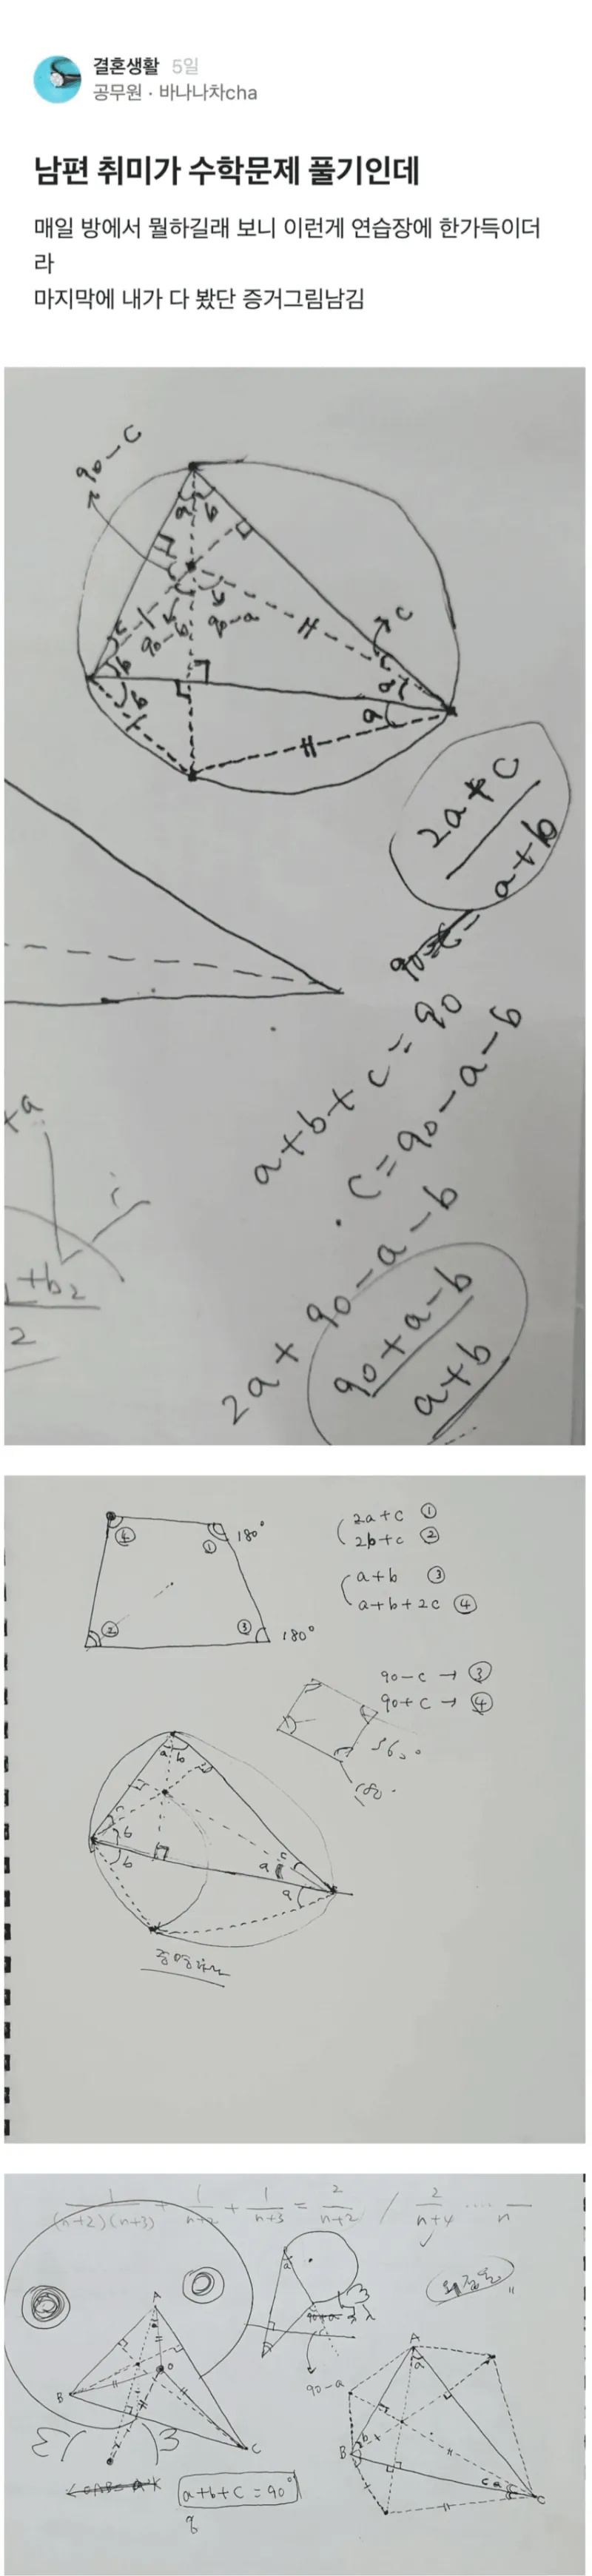 결혼생활 5일
공무원 · 바나나차cha
남편 취미가 수학문제 풀기인데
매일 방에서 뭘하길래 보니 이런게 연습장에 한가득이더
라
마지막에 내가 다 봤단 증거그림남김
90-C
a b
c
c
90-b 90-a
b
b
a
a
2a+c
a+b
a+b+c=90
c=90-a-b
2a+90-a-b
90+a-b
a+b
+a
+b2
2
④ ① 180°
② ③ 180°
2a+c ①
2b+c ②
a+b ③
a+b+2c ④
90-c → ③
90+c → ④
360°
180°
a b
c
b
b
c
a
a
1/(n+2)(n+3) + 1/n+2 + 1/n+3 = 2/n+2 / 2/n+4 .... n
a
90-a
A
B
C
O
a+b+c=90°
A
a
B
b
c a
C